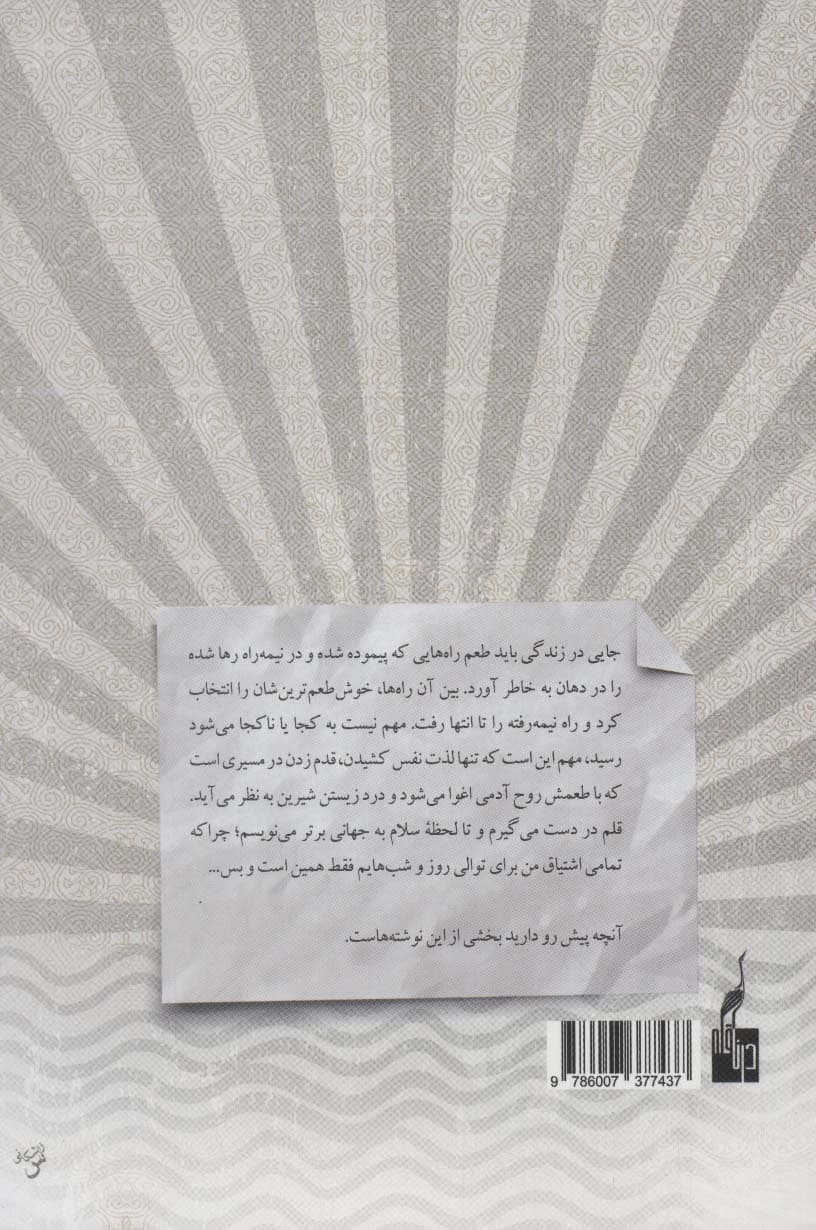 جایی در زندگی باید طعم راه‌هایی که پیموده شده و در نیمه‌راه رها شده
را در دهان به خاطر آورد. بین آن راه‌ها، خوش‌طعم‌ترین‌شان را انتخاب
کرد و راه نیمه‌رفته را تا انتها رفت. مهم نیست به کجا یا ناکجا می‌شود
رسید، مهم این است که تنها لذت نفس کشیدن، قدم زدن در مسیری است
که با طعمش روح آدمی اغوا می‌شود و درد زیستن شیرین به نظر می‌آید.
قلم در دست می‌گیرم و تا لحظهٔ سلام به جهانی برتر می‌نویسم؛ چراکه
تمامی اشتیاق من برای توالی روز و شب‌هایم فقط همین است و بس...
.
آنچه پیش رو دارید بخشی از این نوشته‌هاست.
درناقلم
9 786007 377437